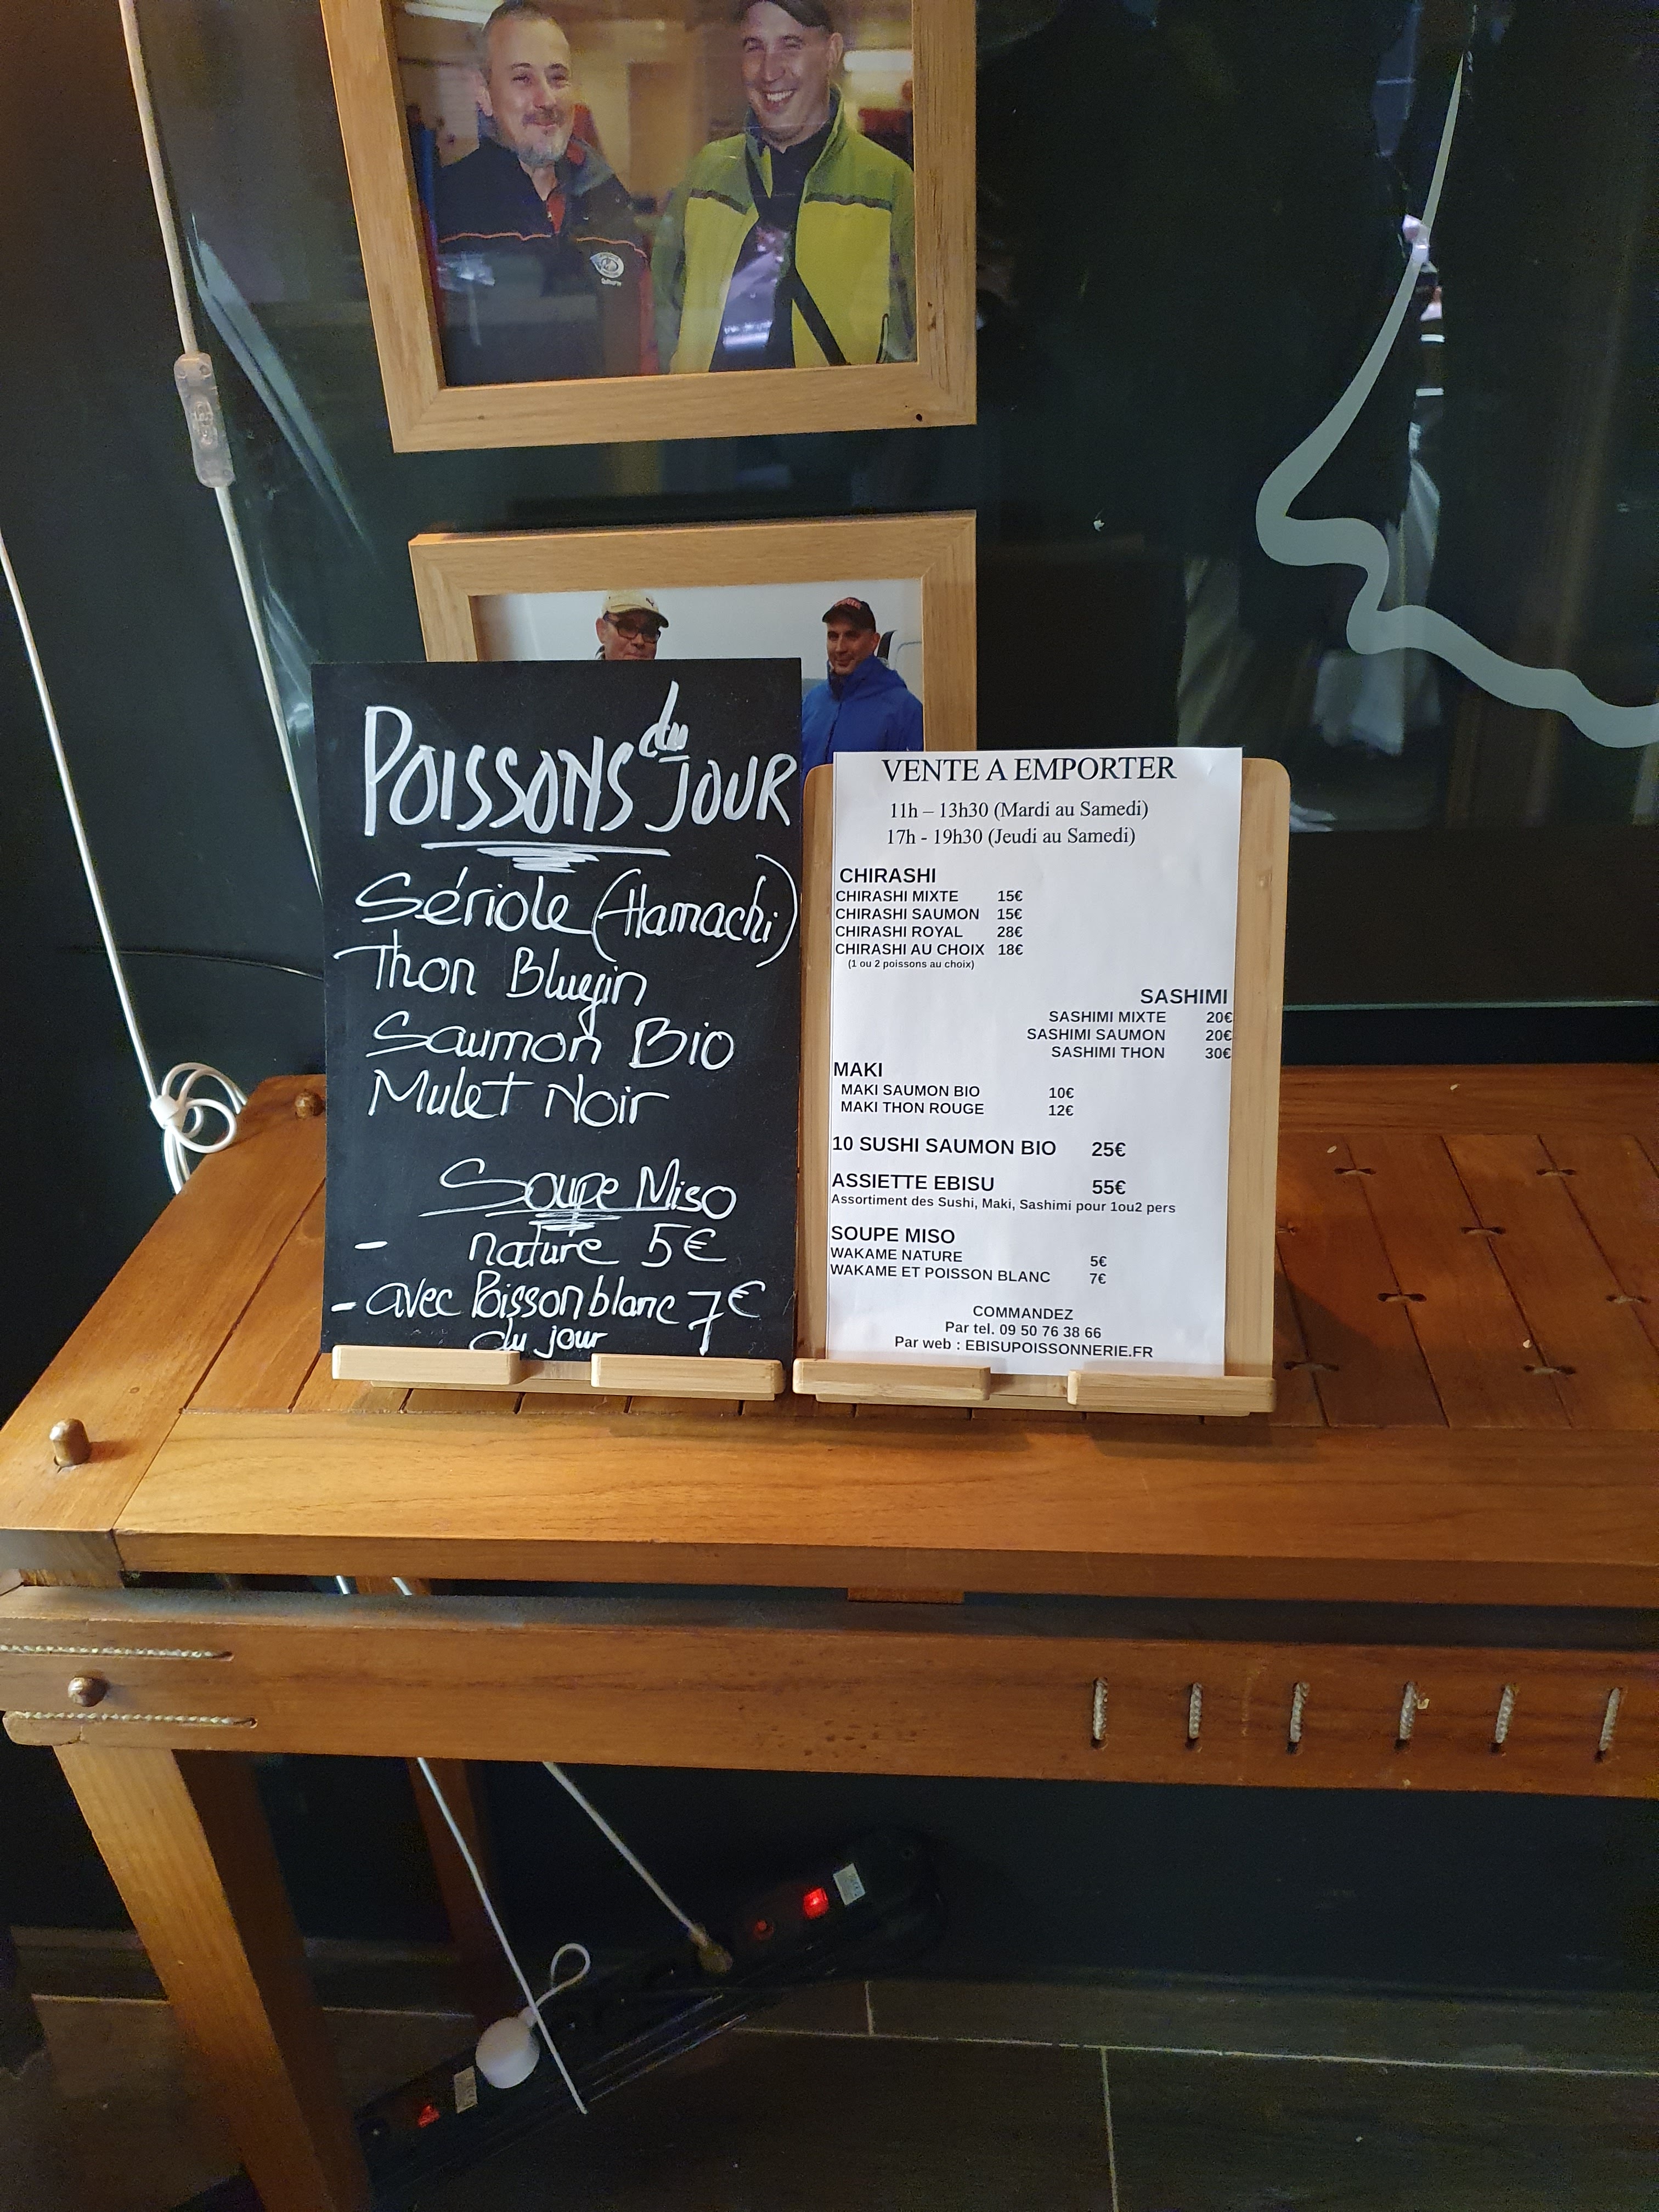 POISSONS du JOUR
Sériole (Hamachi)
Thon Bluefin
Saumon Bio
Mulet Noir
Soupe Miso
- nature 5€
- avec Poisson blanc 7€
du jour
VENTE A EMPORTER
11h – 13h30 (Mardi au Samedi)
17h - 19h30 (Jeudi au Samedi)
CHIRASHI
CHIRASHI MIXTE 15€
CHIRASHI SAUMON 15€
CHIRASHI ROYAL 28€
CHIRASHI AU CHOIX 18€
(1 ou 2 poissons au choix)
SASHIMI
SASHIMI MIXTE 20€
SASHIMI SAUMON 20€
SASHIMI THON 30€
MAKI
MAKI SAUMON BIO 10€
MAKI THON ROUGE 12€
10 SUSHI SAUMON BIO 25€
ASSIETTE EBISU 55€
Assortiment des Sushi, Maki, Sashimi pour 1ou2 pers
SOUPE MISO
WAKAME NATURE 5€
WAKAME ET POISSON BLANC 7€
COMMANDEZ
Par tel. 09 50 76 38 66
Par web : EBISUPOISSONNERIE.FR